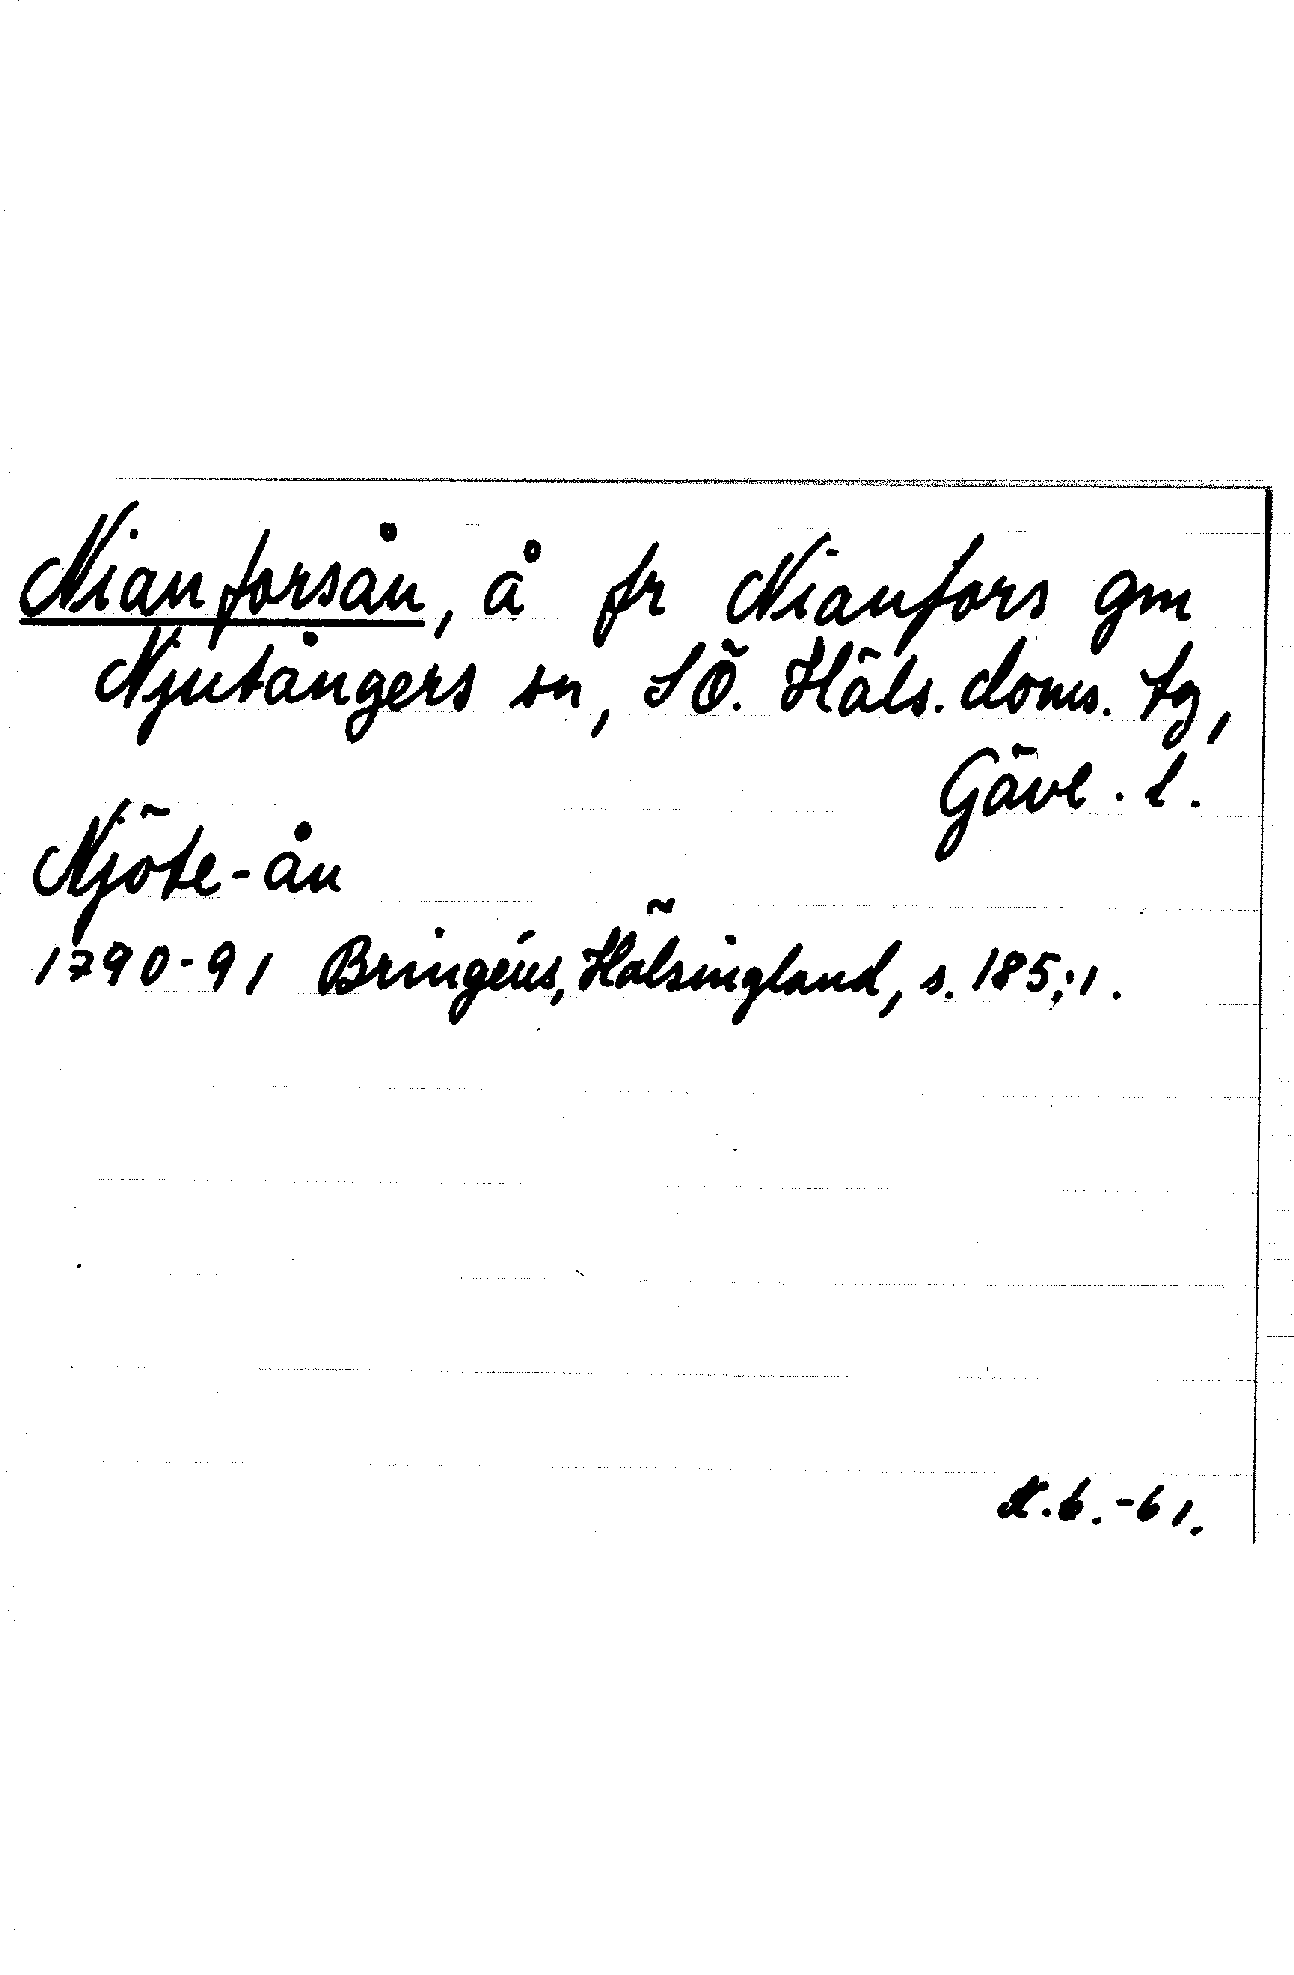 Nianforsån, å fr Nianfors gm
Njutångers sn, SÖ. Häls. doms. tg,
Gävl. l.
Njöte-ån
1790-91 Bringéus, Hälsingland, s. 185;1.
N.b.-61.